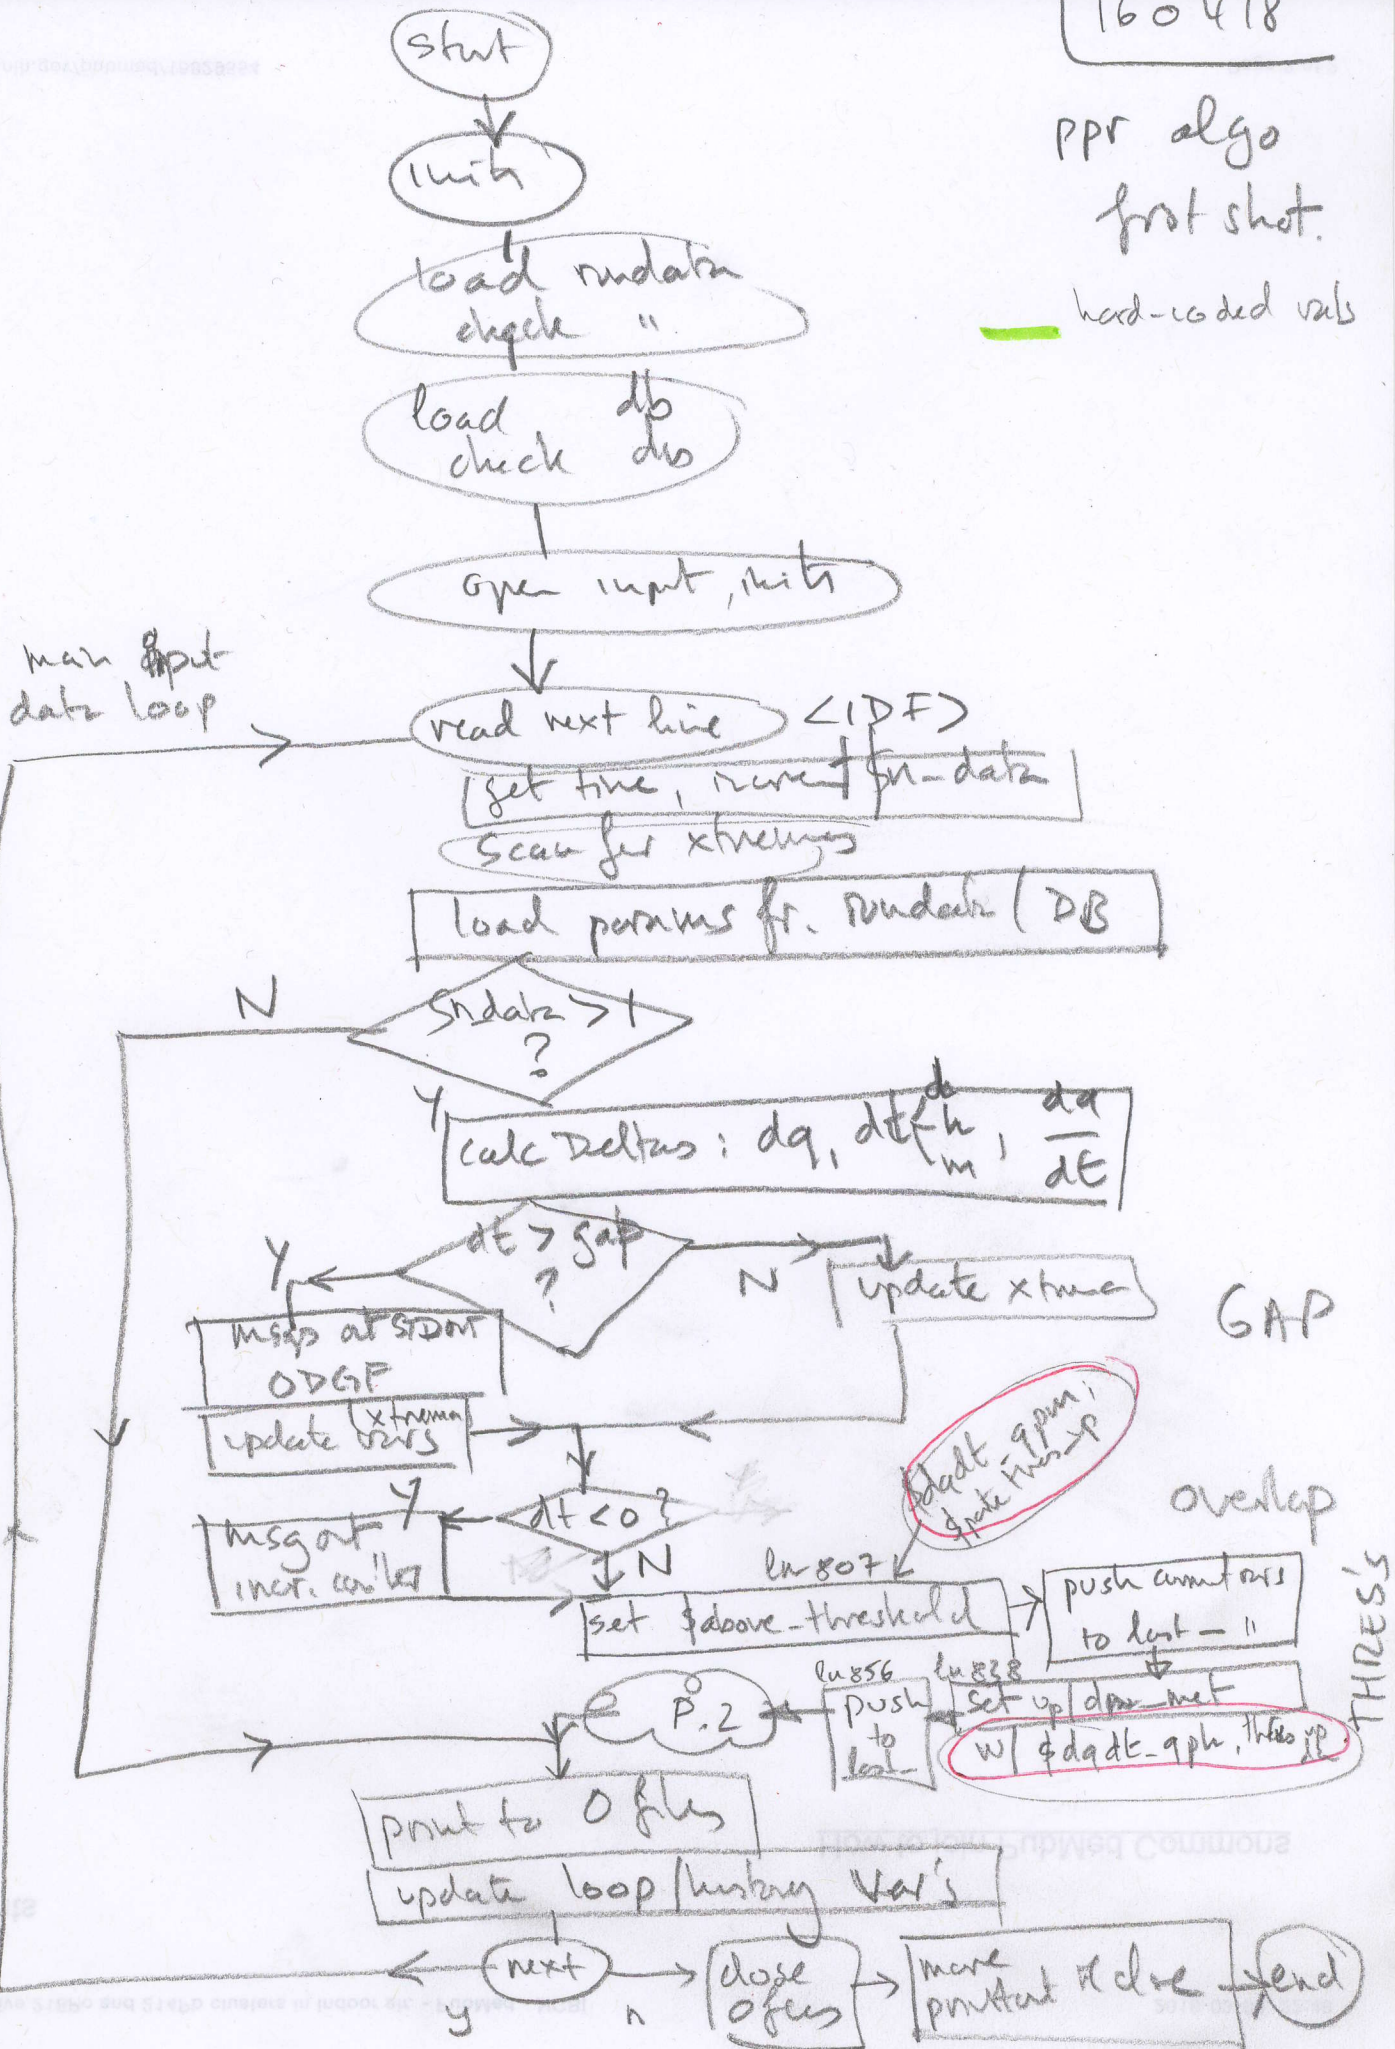 160418
ppr algo
first shot.
hard-coded vals
start
inits
load rundata
check "
load db
check db
open input, inits
main input
data loop
read next line <IDF>
get time, increment $n_data
scan for xtremes
load params fr. rundata / DB
$n_data > 1
?
N
Y
calc Deltas: dq, dt d h m, dq/dt
dt > gap
?
Y
N
update xtrema
GAP
msgs at STDOUT
ODGF
update xtrema vars
$dqdt_qpm;
$rate_thres_up
overlap
dt < 0 ?
Y
N
msg out
incr. counter
ln 807
set $above_threshold
push current vars
to last_ "
THRES'S
ln 838
set up/down_met
w/ $dqdt_qph, thres_up
ln 856
push
to
last_
P.2
print to O files
update loop/history var's
next
y
n
close
O files
more
printout
end
How to join PubMed Commons